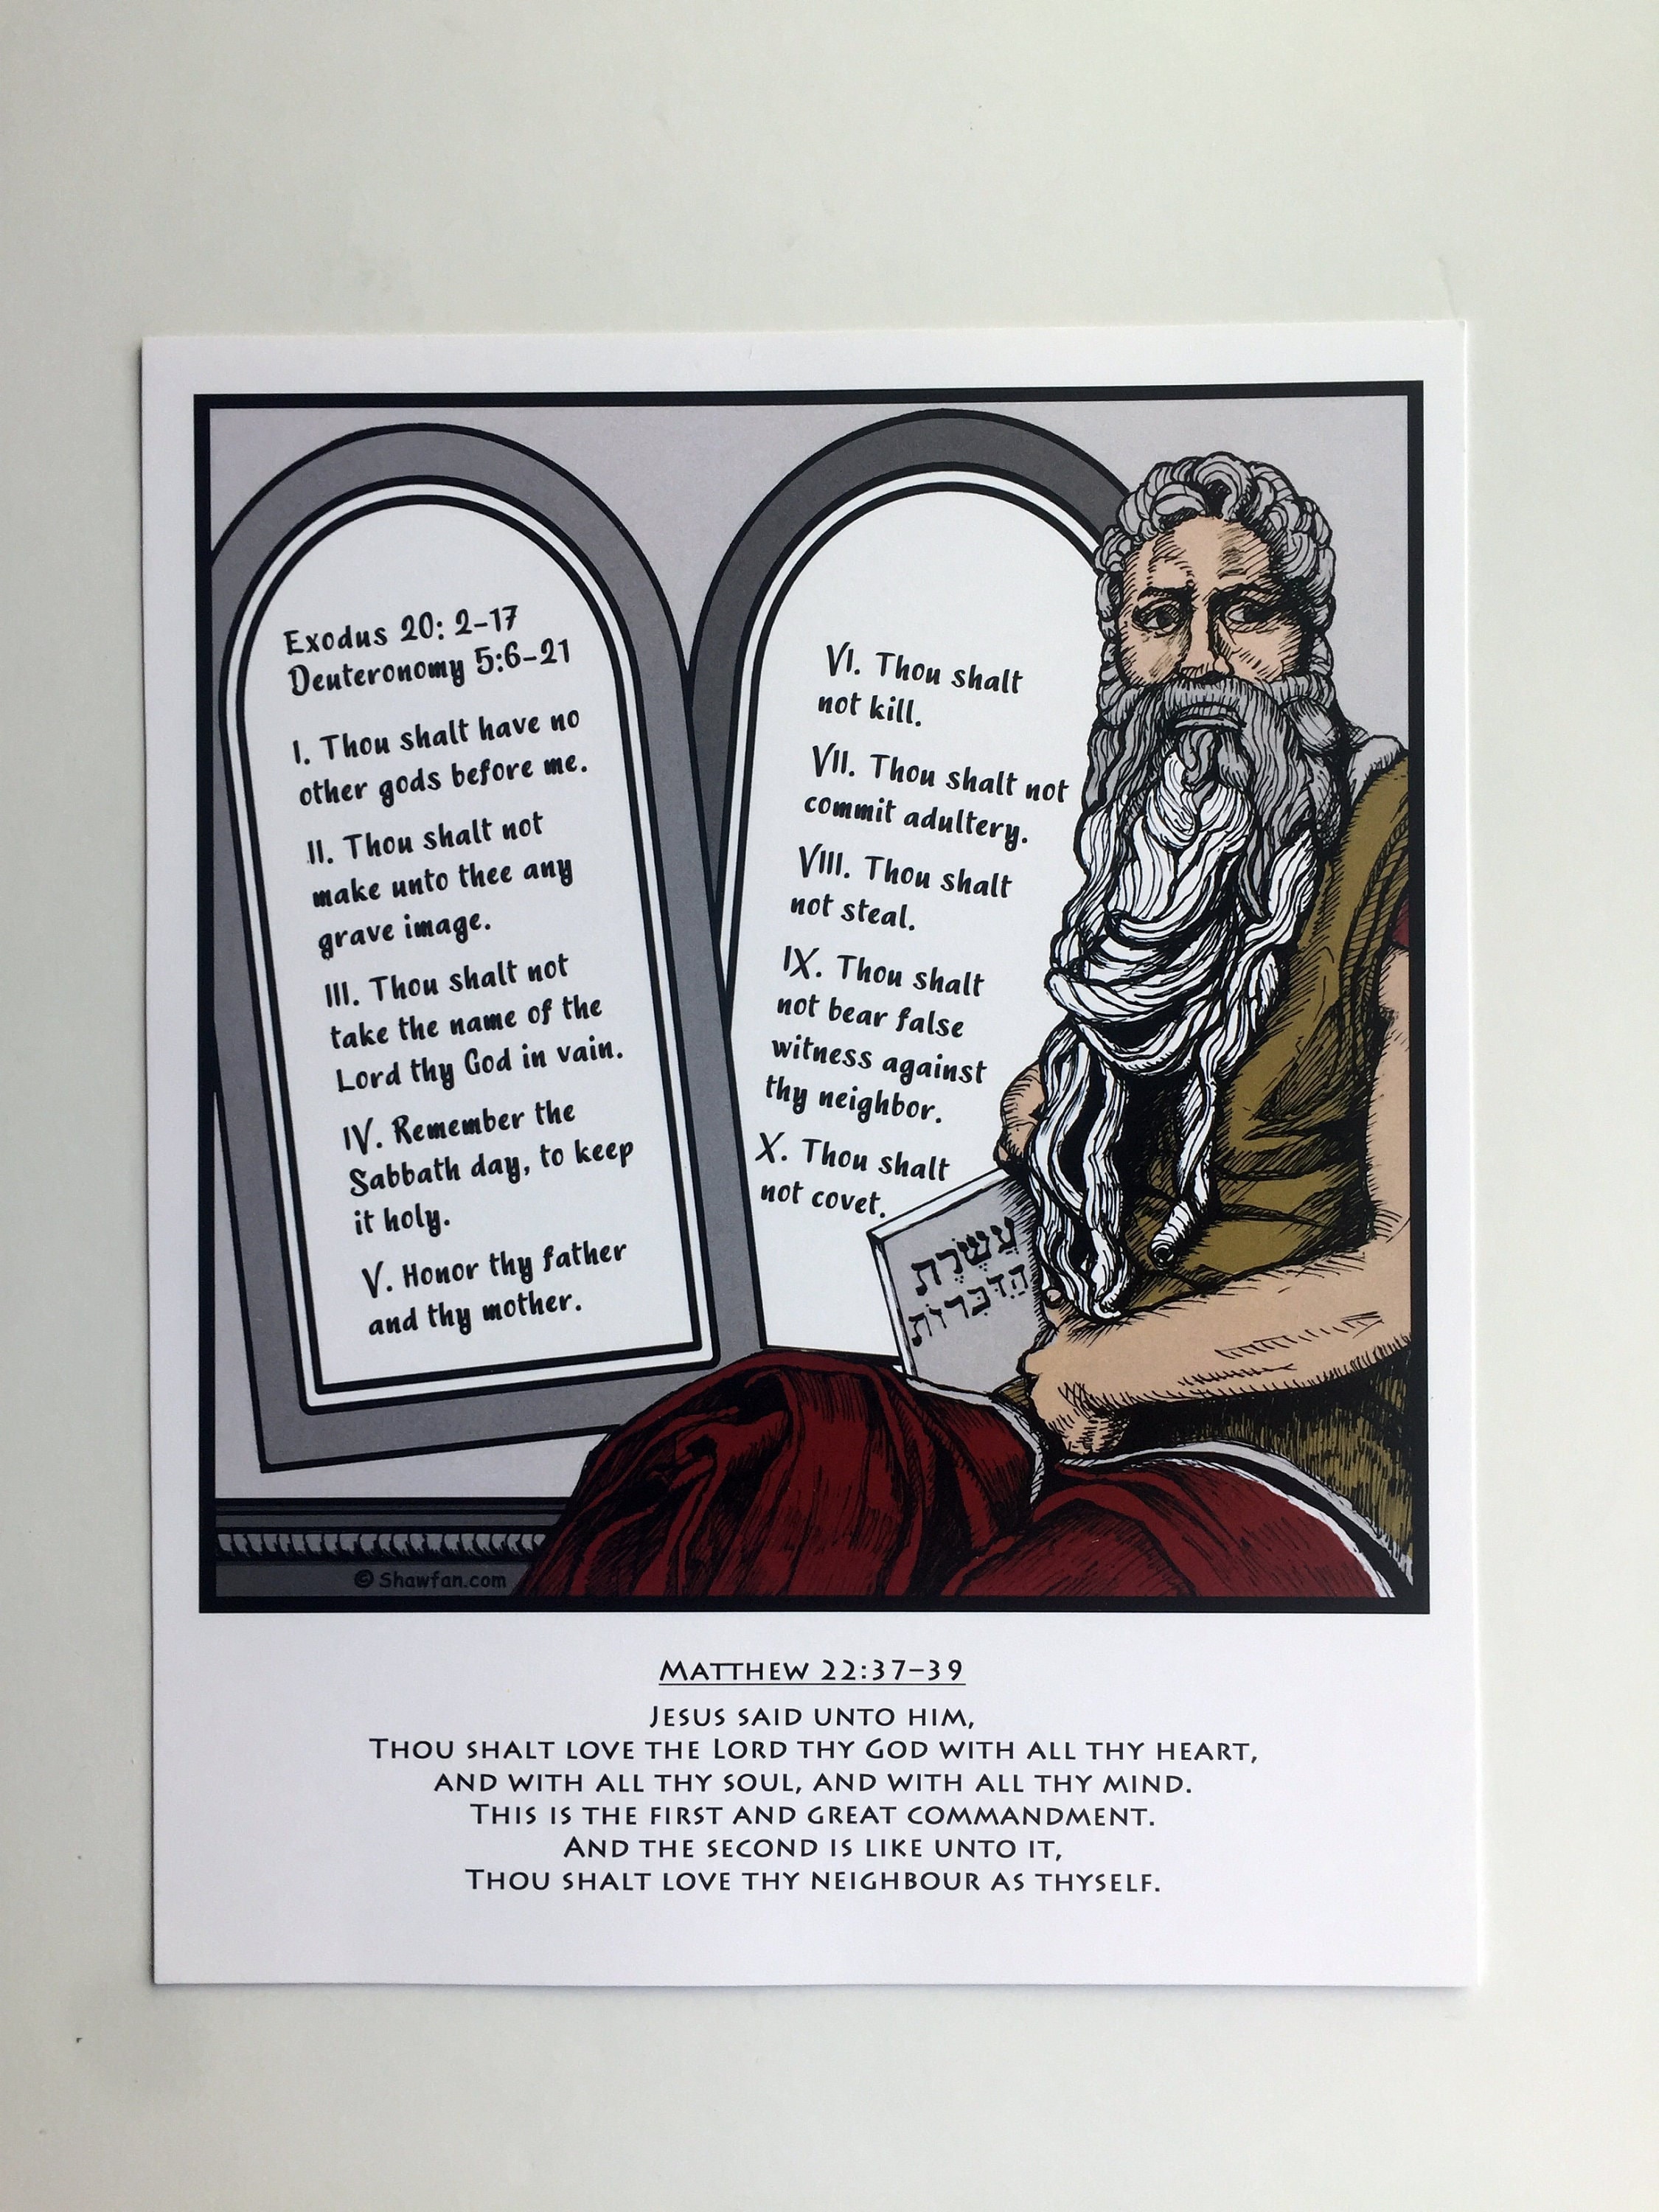 Exodus 20: 2-17
Deuteronomy 5:6-21
I. Thou shalt have no
other gods before me.
II. Thou shalt not
make unto thee any
grave image.
III. Thou shalt not
take the name of the
Lord thy God in vain.
IV. Remember the
Sabbath day, to keep
it holy.
V. Honor thy father
and thy mother.
VI. Thou shalt
not kill.
VII. Thou shalt not
commit adultery.
VIII. Thou shalt
not steal.
IX. Thou shalt
not bear false
witness against
thy neighbor.
X. Thou shalt
not covet.
עֲשֶׂרֶת
הַדִּבְּרוֹת
© Shawfan.com
MATTHEW 22:37–39
JESUS SAID UNTO HIM,
THOU SHALT LOVE THE LORD THY GOD WITH ALL THY HEART,
AND WITH ALL THY SOUL, AND WITH ALL THY MIND.
THIS IS THE FIRST AND GREAT COMMANDMENT.
AND THE SECOND IS LIKE UNTO IT,
THOU SHALT LOVE THY NEIGHBOUR AS THYSELF.